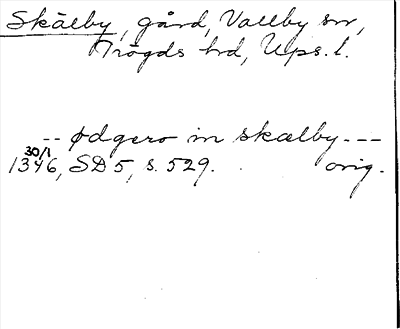 Skälby, gård, Vallby sn,
Trögds hd, Ups. l.
-- ødgero in skælby ---
30/1
1346, SD 5, s. 529. orig.